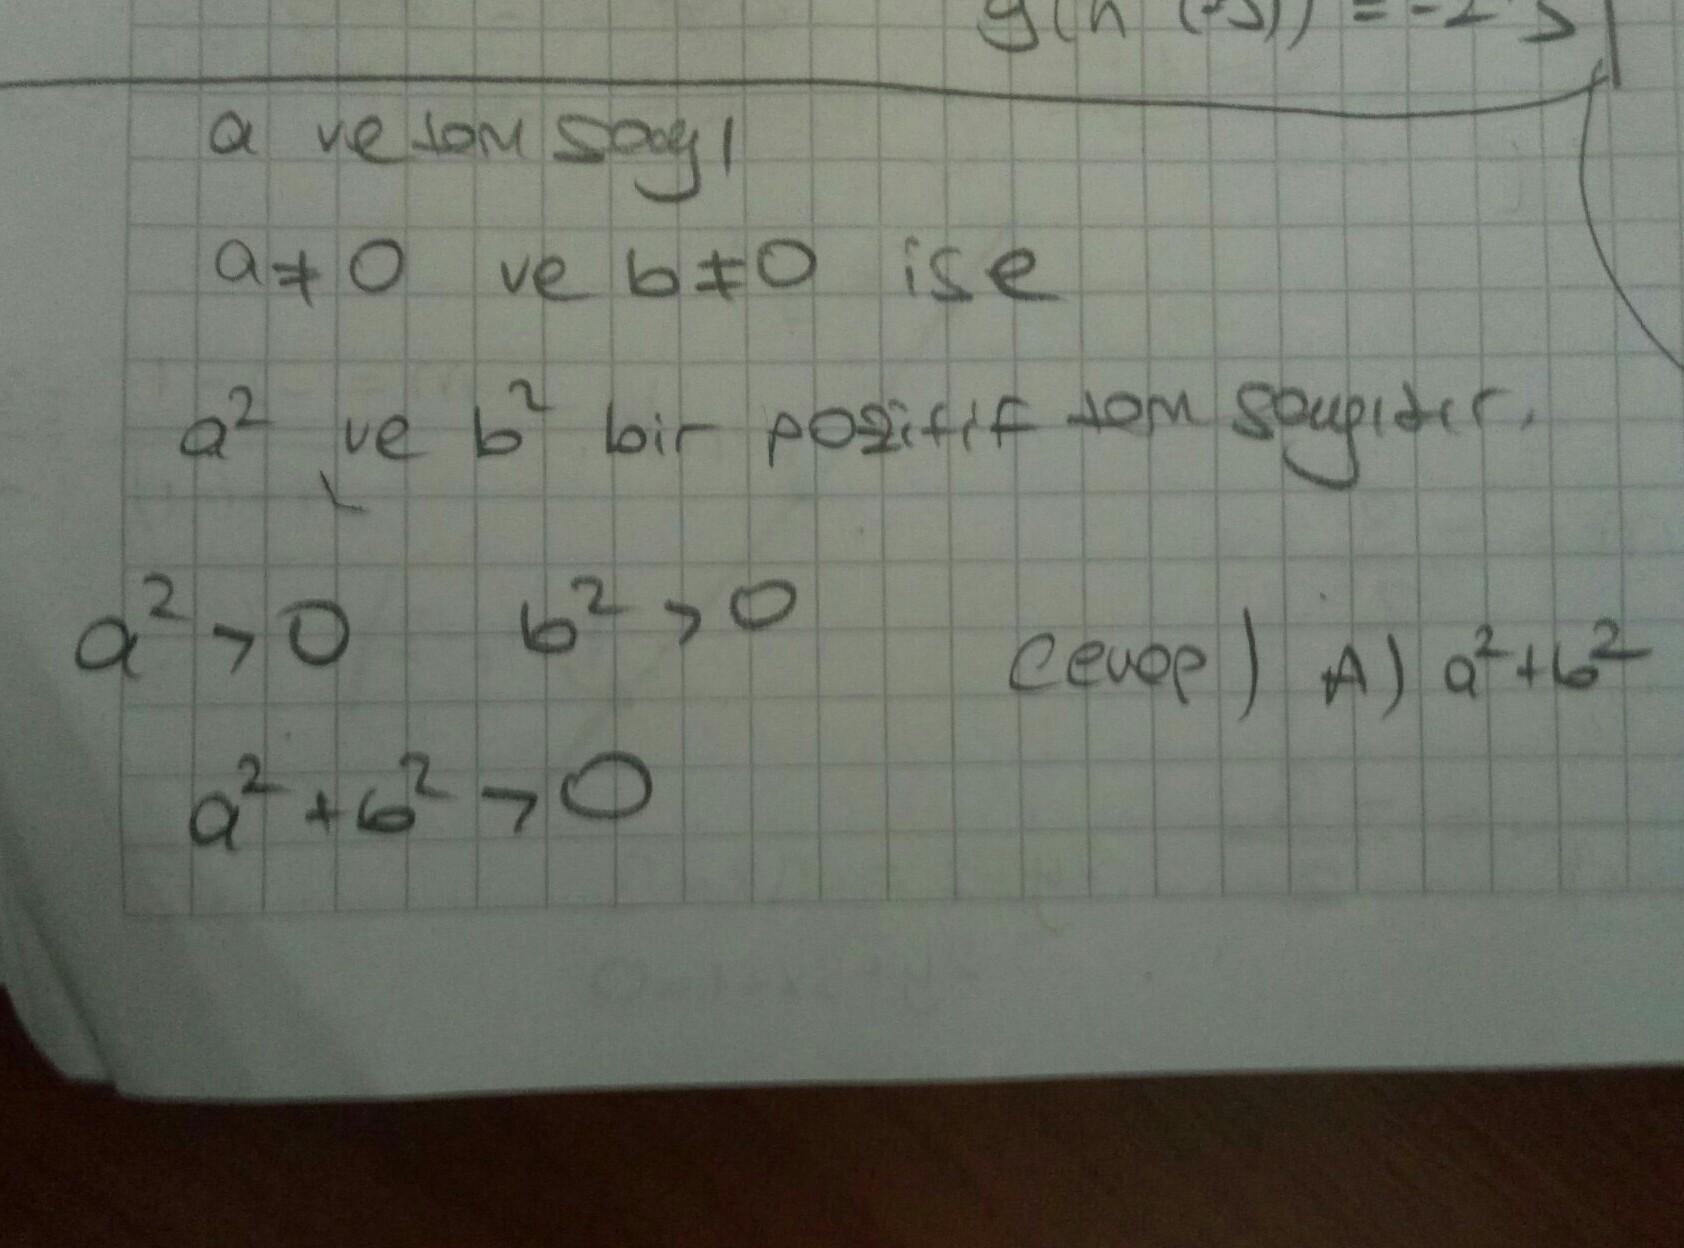 a ve tam sayı
a ≠ 0 ve b ≠ 0 ise
a² ve b² bir pozitif tam sayıdır.
a² > 0 b² > 0
Cevap) A) a²+b²
a² + b² > 0